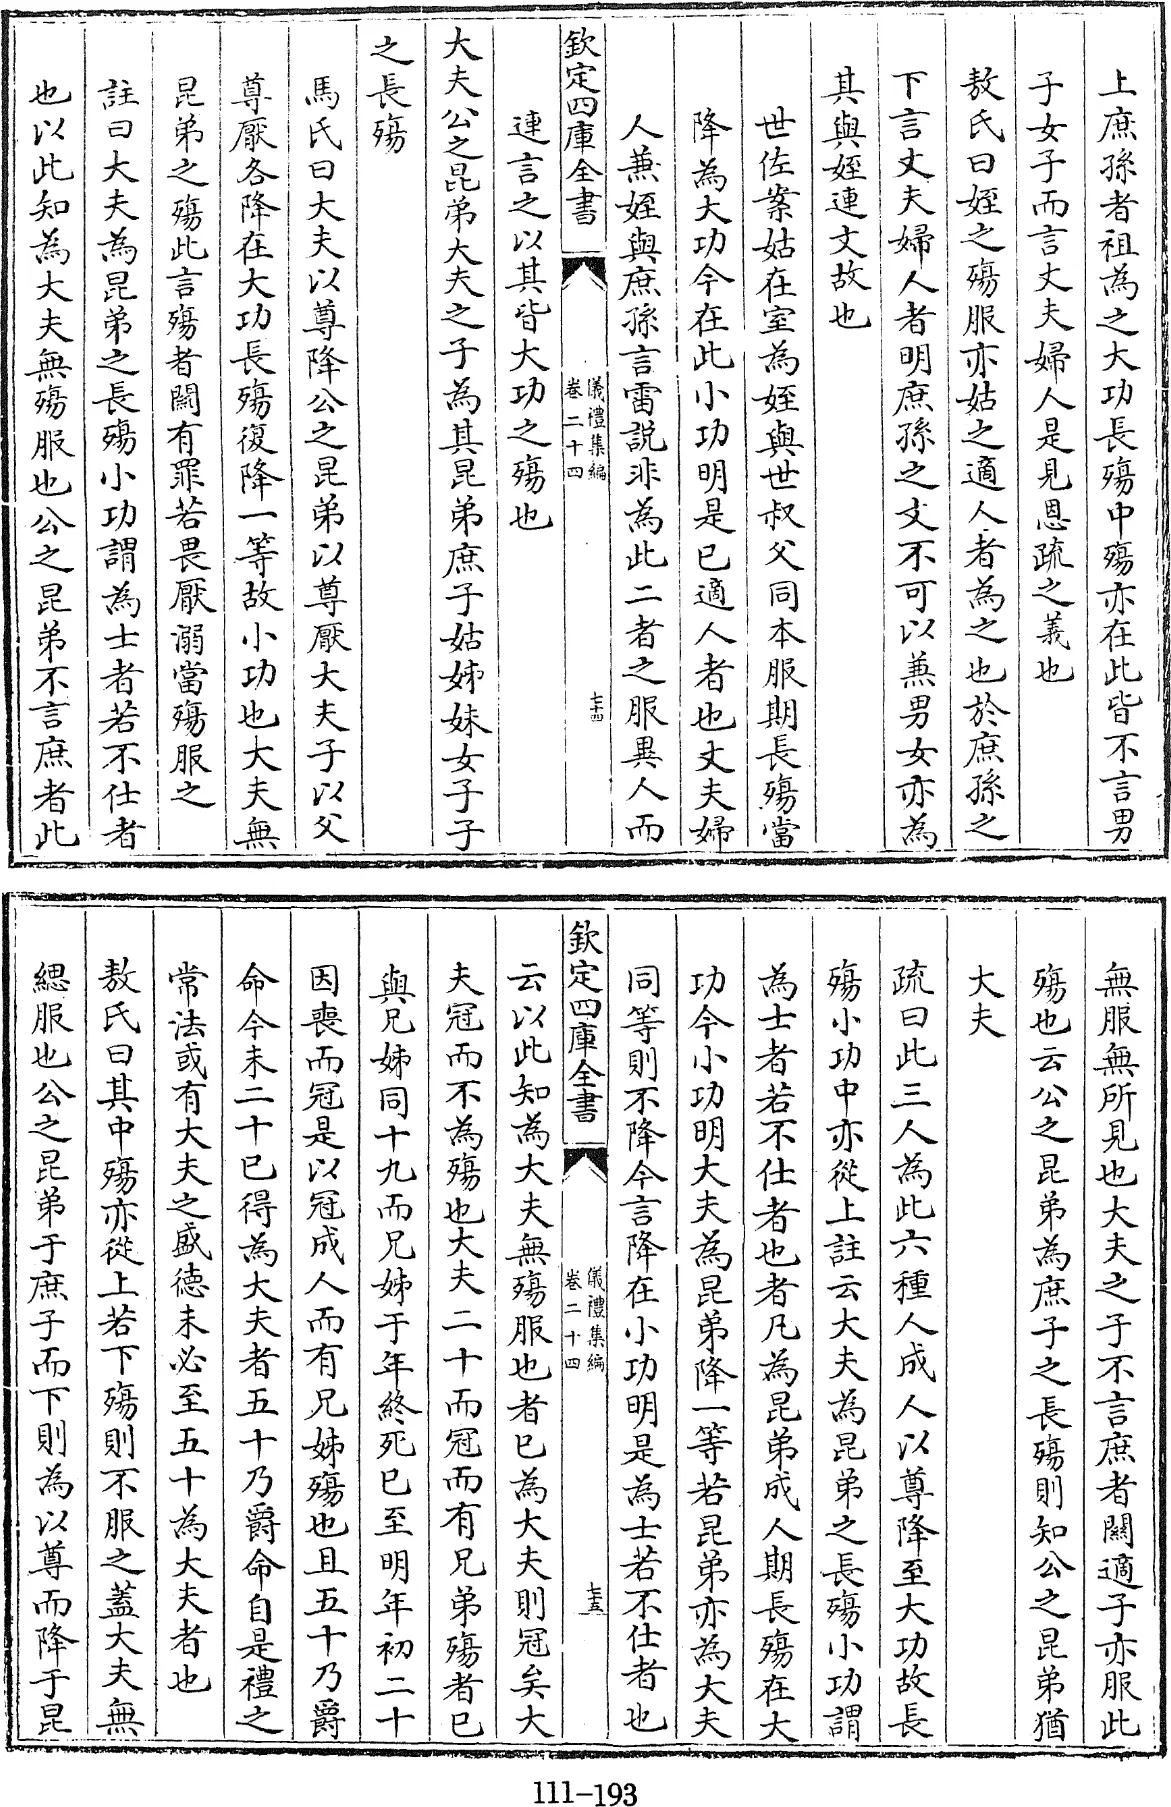 上庶孫者祖為之大功長殤中殤亦在此皆不言男
子女子而言丈夫婦人是見恩疏之義也
敖氏曰姪之殤服亦姑之適人者為之也於庶孫之
下言丈夫婦人者明庶孫之文不可以兼男女亦為
其與姪連文故也
世佐案姑在室為姪與世叔父同本服期長殤當
降為大功今在此小功明是已適人者也丈夫婦
人兼姪與庶孫言雷説非為此二者之服異人而
欽定四庫全書
儀禮集編
卷二十四
七十四
連言之以其皆大功之殤也
大夫公之昆弟大夫之子為其昆弟庶子姑姊妹女子子
之長殤
馬氏曰大夫以尊降公之昆弟以尊厭大夫子以父
尊厭各降在大功長殤復降一等故小功也大夫無
昆弟之殤此言殤者關有罪若畏厭溺當殤服之
註曰大夫為昆弟之長殤小功謂為士者若不仕者
也以此知為大夫無殤服也公之昆弟不言庶者此
無服無所見也大夫之子不言庶者關適子亦服此
殤也云公之昆弟為庶子之長殤則知公之昆弟猶
大夫
疏曰此三人為此六種人成人以尊降至大功故長
殤小功中亦從上註云大夫為昆弟之長殤小功謂
為士者若不仕者也者凡為昆弟成人期長殤在大
功今小功明大夫為昆弟降一等若昆弟亦為大夫
同等則不降今言降在小功明是為士若不仕者也
欽定四庫全書
儀禮集編
卷二十四
七十五
云以此知為大夫無殤服也者已為大夫則冠矣大
夫冠而不為殤也大夫二十而冠而有兄弟殤者已
與兄姊同十九而兄姊于年終死已至明年初二十
因喪而冠是以冠成人而有兄姊殤也且五十乃爵
命今未二十已得為大夫者五十乃爵命自是禮之
常法或有大夫之盛德未必至五十為大夫者也
敖氏曰其中殤亦從上若下殤則不服之蓋大夫無
緦服也公之昆弟于庶子而下則為以尊而降于昆
111-193